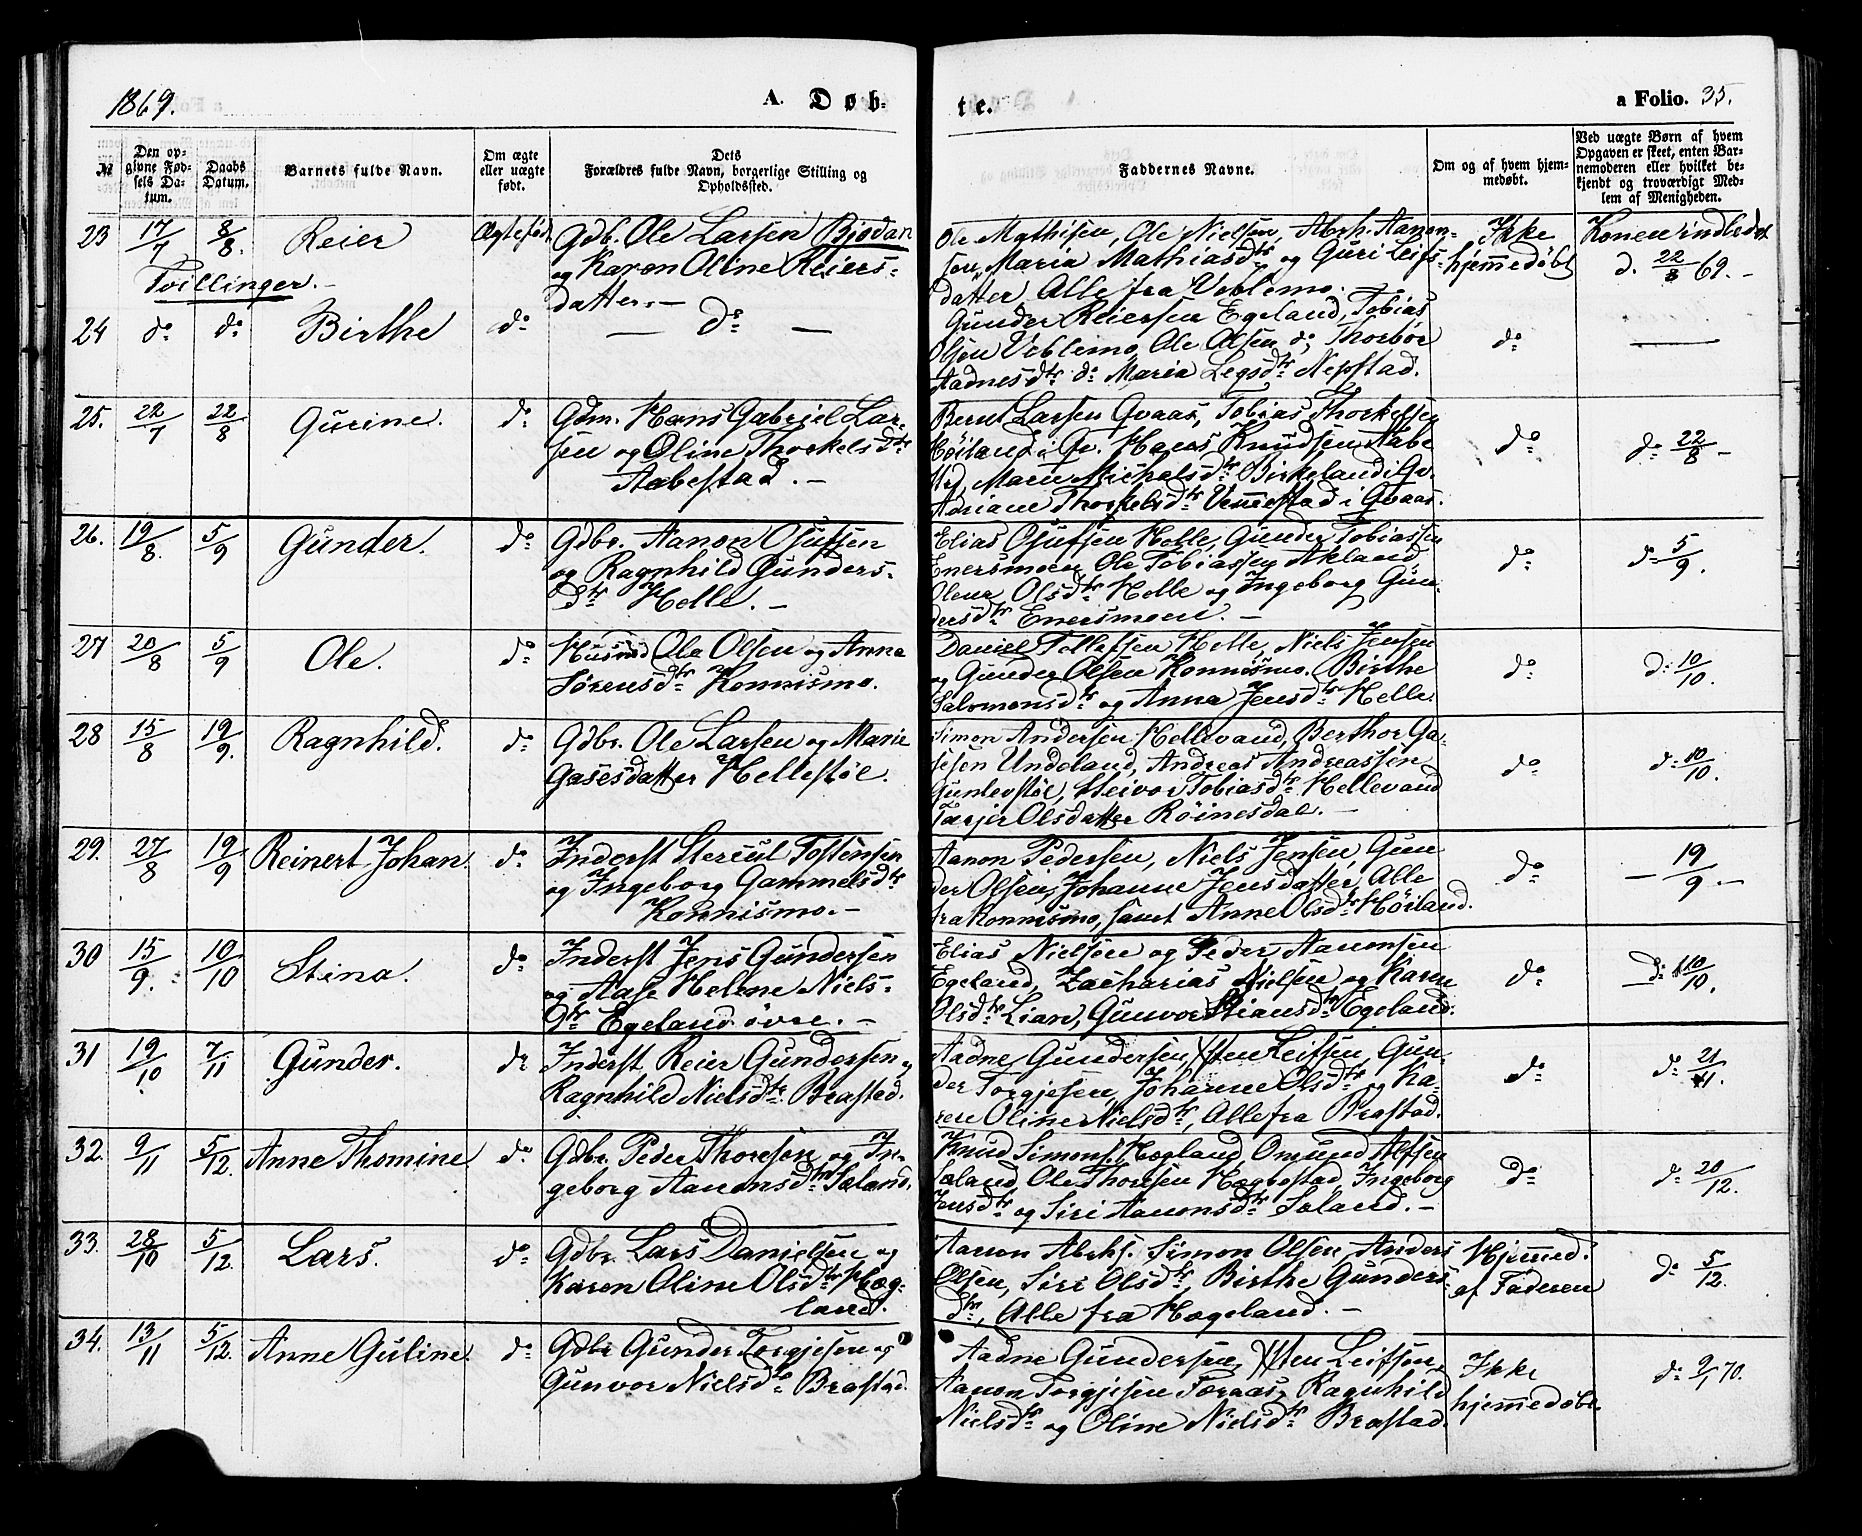 1869.
A. Døb-
te.
a Folio. 35.
№
Den op-
givne Fød-
sels Da-
tum.
Daabs
Datum.
Barnets fulde Navn.
Om ægte
eller uægte
født.
Dets
Forældres fulde Navn, borgerlige Stilling og
Opholdssted.
Faddernes Navne.
Om og af hvem hjem-
medøbt.
Ved uægte Børn af hvem
Opgaven er skeet, enten Bar-
nemoderen eller hvilket be-
kjendt og troværdigt Med-
lem af Menigheden.
23 17/7 8/8. Reier Ægtefød.
Tvillinger.-
Gdb. Ole Larsen Bjodan
og Karen Oline Reiers-
datter.-
Ole Mathisen, Ole Nielsen, Abrh. Aanon-
sen, Maria Mathiasdtr og Guri Leifs-
datter Alle fra Veblemo.
Ikke
hjemmedøbt
Konen indledet
d. 22/8 69.-
24 do do Birthe do — do —
Gunder Reiersen Egeland, Tobias
Olsen Veblemo, Ole Olsen do, Thorbør
Aadnesdtr do Maria Legsdtr Nepstad.
do —
25. 22/7 22/8 Gurine. do
Gdm. Hans Gabriel Lar-
sen og Oline Thorkelsdtr
Aabestad.-
Bernt Larsen Qvaas, Tobias Thorkelsen
Høiland i Qv. Hans Knudsen Aabe
sted, Maren Michalsdtr Birkeland i Qv.
Adriane Thorkelsdtr Vennestad i Qvaas.
do do 22/8 -
26. 19/8. 5/9 Gunder. do
Gdbr. Aanon Olufsen
og Ragnhild Gunders-
dtr Helle.-
Elias Olufsen Helle, Gunder Tobiassen
Enersmoen Ole Tobiassen Akland
Olene Olsdtr Helle og Ingeborg Gun-
dersdtr Enersmoen.-
do do 5/9.
27 20/8 5/9 Ole. do
Husmd Ole Olsen og Anna
Sørensdtr Konnismo.
Daniel Tellefsen Helle, Niels Jensen
og Gunder Olsen Konnismo. Birthe
Salomonsdtr og Anna Jensdtr Helle.
do d: 10/10.
28 15/8 19/9. Ragnhild. do
Gdbr. Ole Larsen og Marie
Gasesdatter Hellestøl.
Simon Andersen Hellevand, Berthor Ga-
sesen Undeland, Andreas Andreassen
Gunlevstøl, Steivor Tobiasdtr Hellevand
Tarjer Olsdatter Røinesdal.-
do d: 10/10.
29. 27/8 19/9 Reinert Johan. do
Inderst Stersul Tostensen
og Ingeborg Gammelsdtr
Konnismo.-
Aanon Pedersen, Niels Jensen, Gun
der Olsen, Johanne Jensdatter, Alle
fra Konnismo, samt Anne Olsdtr Høiland.
do — 19/9.-
30 15/9. 10/10 Stina. do
Inderst Jens Gundersen
og Aase Helene Niels-
dtr Egeland øvre.-
Elias Nielsen og Peder Aanonsen
Egeland, Zacharias Nielsen og Karen
Olsdtr Lian, Gunvor Stiansdtr Egeland.
do d: 10/10.
31 19/10 7/11 Gunder. do
Inderst, Reier Gundersen og
Ragnhild Nielsdtr Brastad.
Aadne Gundersen, Sten Leifsen, Gun-
der Torgjesen, Johanne Olsdtr og Ka-
ren Oline Nielsdtr, Alle fra Brastad.
do do 21/11.
32. 9/11 5/12. Anne Thomine do
Gdbr. Peder Thoresen og In-
geborg Aanonsdtr Saland.
Knud Simons. Hægland, Omund Alfsen
Saland, Ole Thoresen Hægbostad, Ingeborg
Jensdtr og Siri Aanonsdtr Saland.-
do do 20/12.
33. 28/10 5/12. Lars. do
Gdbr Lars Danielsen og
Karen Oline Olsdtr Hæg-
land.
Aanon Abrhs. Simon Olsen, Anders
Olsen, Siri Olsdtr, Birthe Gunders-
dtr, Alle fra Hægeland.-
Hjemmed.
af Faderen
do 5/12.
34. 13/11 5/12. Anne Guline. do
Gdbr Gunder Torgjesen og
Gunvor Nielsdtr Brastad.
Aadne Gundersen, Sten Leifsen,
Aanon Torgjesen Foraas, Ragnhild
Nielsdtr og Oline Nielsdtr Brastad.
Ikke
hjemmedøbt.
do 9/1 70.